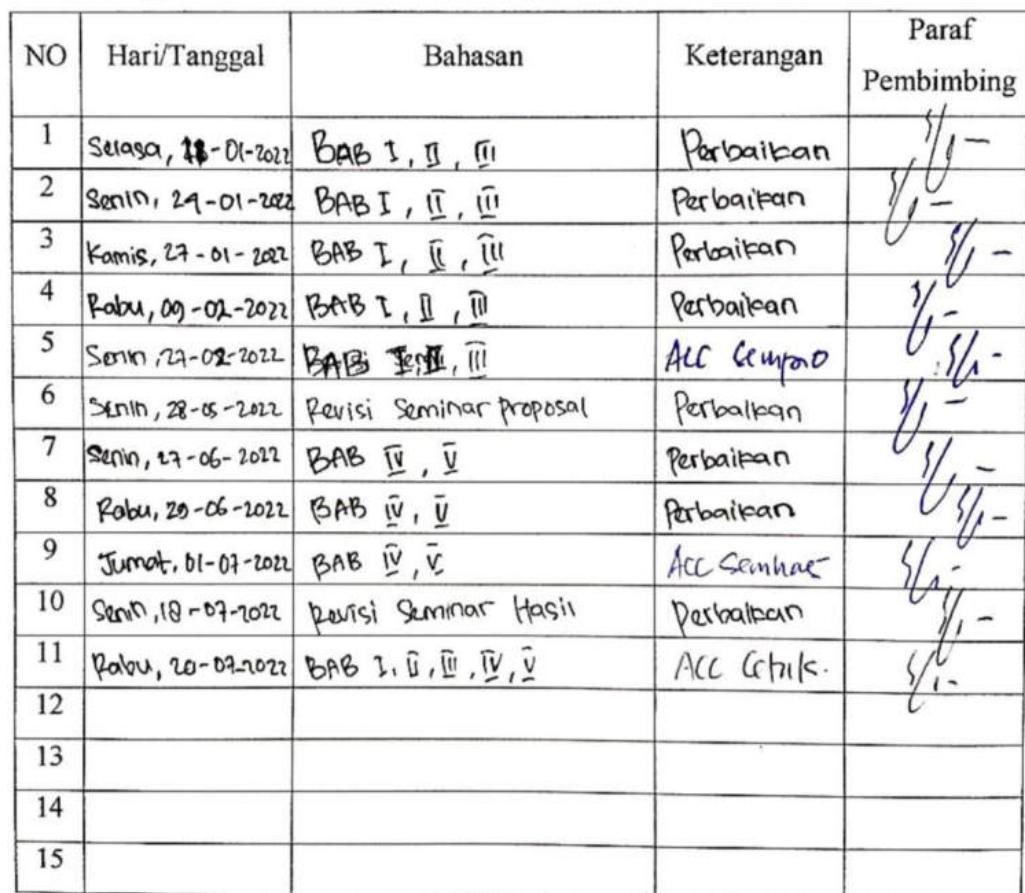 NO Hari/Tanggal Bahasan Keterangan Paraf Pembimbing
1 Selasa, 18-01-2022 BAB I, II, III Perbaikan
2 Senin, 24-01-2022 BAB I, II, III Perbaikan
3 Kamis, 27-01-2022 BAB I, II, III Perbaikan
4 Rabu, 09-02-2022 BAB I, II, III Perbaikan
5 Senin, 27-02-2022 BAB III ACC Sempro
6 Senin, 28-05-2022 Revisi Seminar Proposal Perbaikan
7 Senin, 27-06-2022 BAB IV, V Perbaikan
8 Rabu, 29-06-2022 BAB IV, V Perbaikan
9 Jumat, 01-07-2022 BAB IV, V ACC Semhas
10 Senin, 18-07-2022 Revisi Seminar Hasil Perbaikan
11 Rabu, 20-07-2022 BAB I, II, III, IV, V ACC Cetak.
12
13
14
15